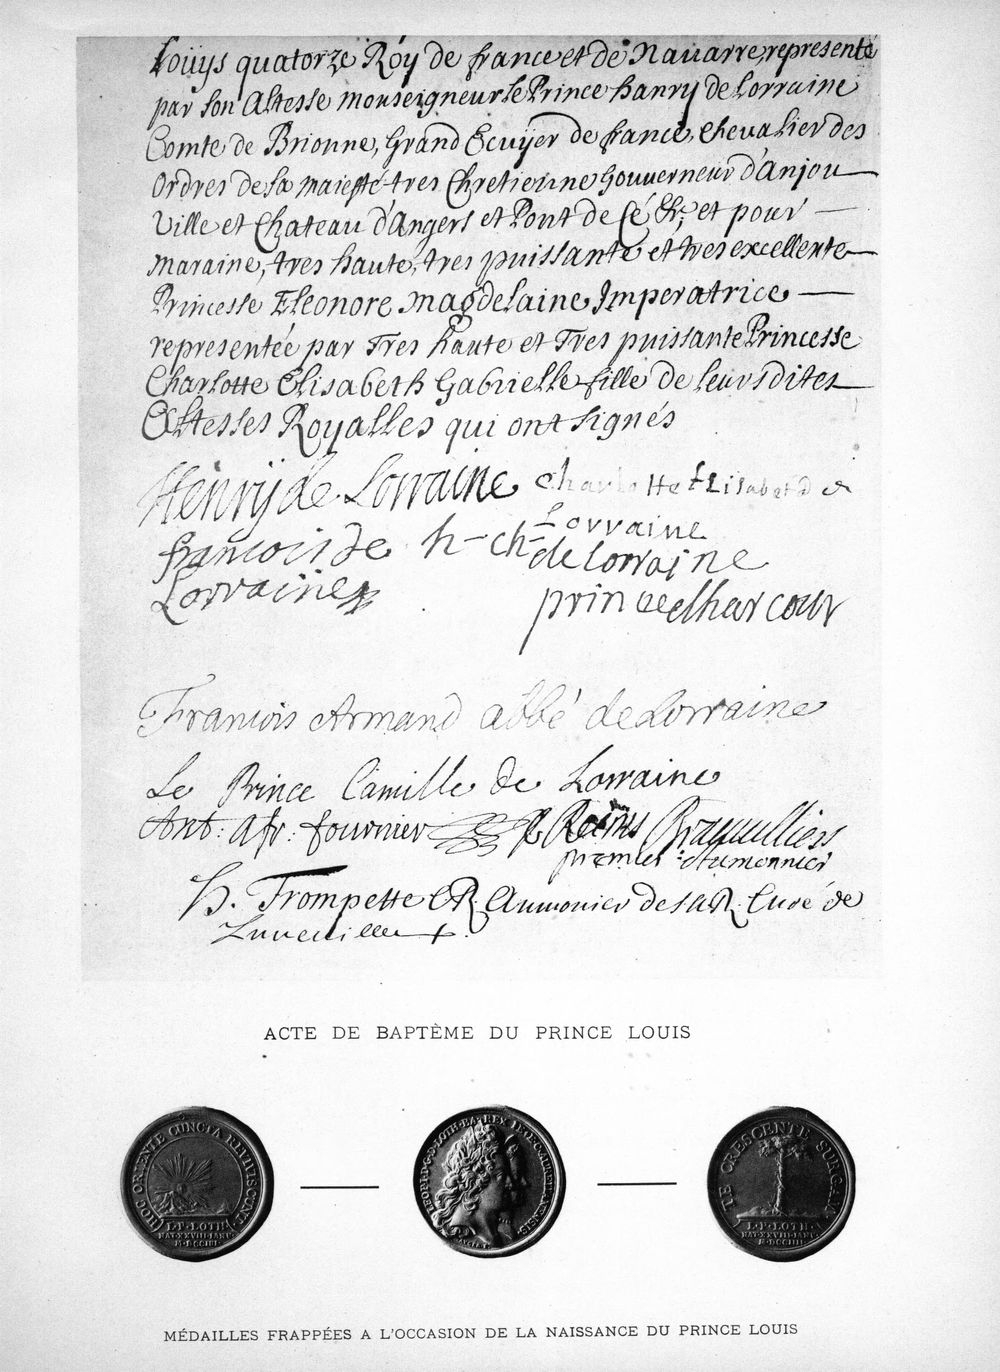 Louys quatorze Roy de france et de Nauarre, representé
par son Altesse monseigneur le Prince hanry de Lorraine
Comte de Brionne, Grand Ecuyer de france, chevalier des
Ordres de sa maiesté tres Chretienne Gouuerneur d'Anjou
Ville et Chateau d'Angers et Pont de Cé &c, et pour —
Maraine, tres haute, tres puissante et tres excellente
Princesse Eleonore Magdelaine Imperatrice —
representée par Tres haute et Tres puissante Princesse
Charlotte Elisabeth Gabrielle fille de leursdites
Altesses Royalles qui ont signés
Henry de Lorraine Charlotte Elisabet de
Lorraine
francois de Lorraine
h - ch - de lorraine
prince dharcour
Francois Armand abbé de Lorraine
Le Prince Camille de Lorraine
Ant: fournier
premier Aumonnier
H. Trompette CR. Aumonier de S A R. Curé de
Luneuille
ACTE DE BAPTÈME DU PRINCE LOUIS
HOC ORIENTE CUNCTA REVIVISCUNT
L·P·LOTH
NAT·XXVIII·IANV·
M·DCCIIII·
LEOP·I·D·G·D·LOTH·BA·REX IE
TE CRESCENTE SURGAM
L·P·LOTH·
NAT·XXVIII·IANV·
M·DCCIIII·
MÉDAILLES FRAPPÉES A L'OCCASION DE LA NAISSANCE DU PRINCE LOUIS